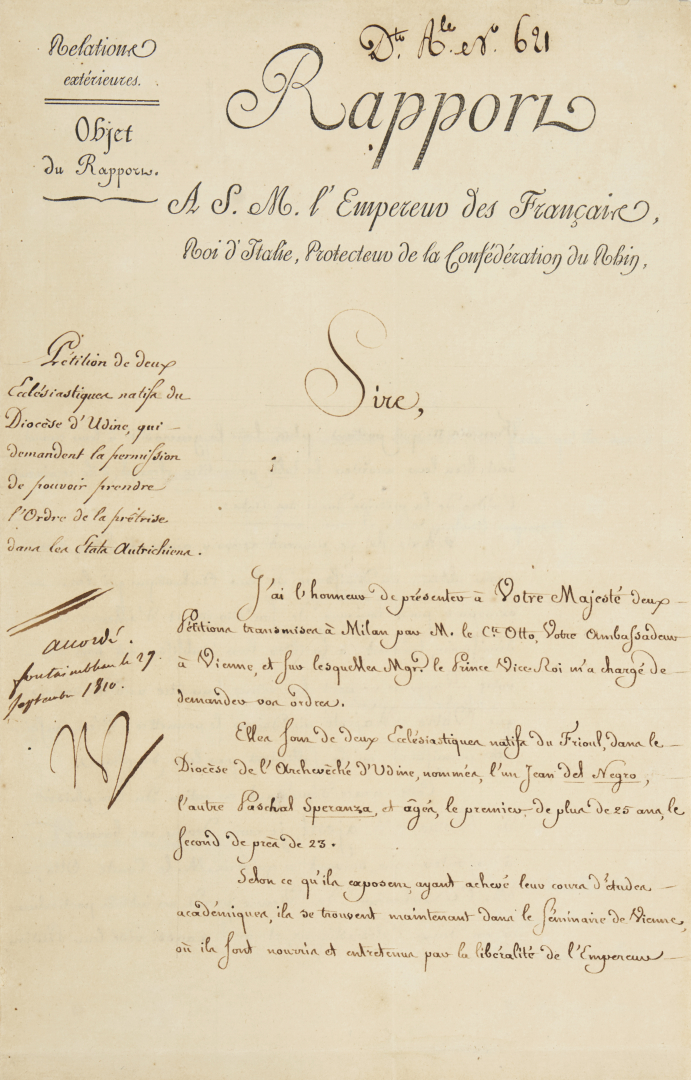 Relations
extérieures.
Objet
du Rapport.
Dto. Ale. No. 621
Rapport
A S. M. l'Empereur des Français,
Roi d'Italie, Protecteur de la Confédération du Rhin,
Pétition de deux
Ecclésiastiques natifs du
Diocèse d'Udine, qui
demandent la permission
de pouvoir prendre
l'Ordre de la prêtrise
dans les Etats Autrichiens.
accordé.
fontainebleau le 29.
septembre 1810.
Sire,
J'ai l'honneur de présenter à Votre Majesté deux
Pétitions transmises à Milan par M. le Cte. Otto, Votre Ambassadeur
à Vienne, et sur lesquelles Mgr. le Prince Vice-Roi m'a chargé de
demander vos ordres.
Elles sont de deux Ecclésiastiques natifs du Frioul, dans le
Diocèse de l'Archevêché d'Udine, nommés, l'un Jean del Negro,
l'autre Paschal Speranza, et âgés, le premier de plus de 25 ans, le
second de près de 23.
Selon ce qu'ils exposent, ayant achevé leur cours d'études
académiques, ils se trouvent maintenant dans le Séminaire de Vienne,
où ils sont nourris et entretenus par la libéralité de l'Empereur